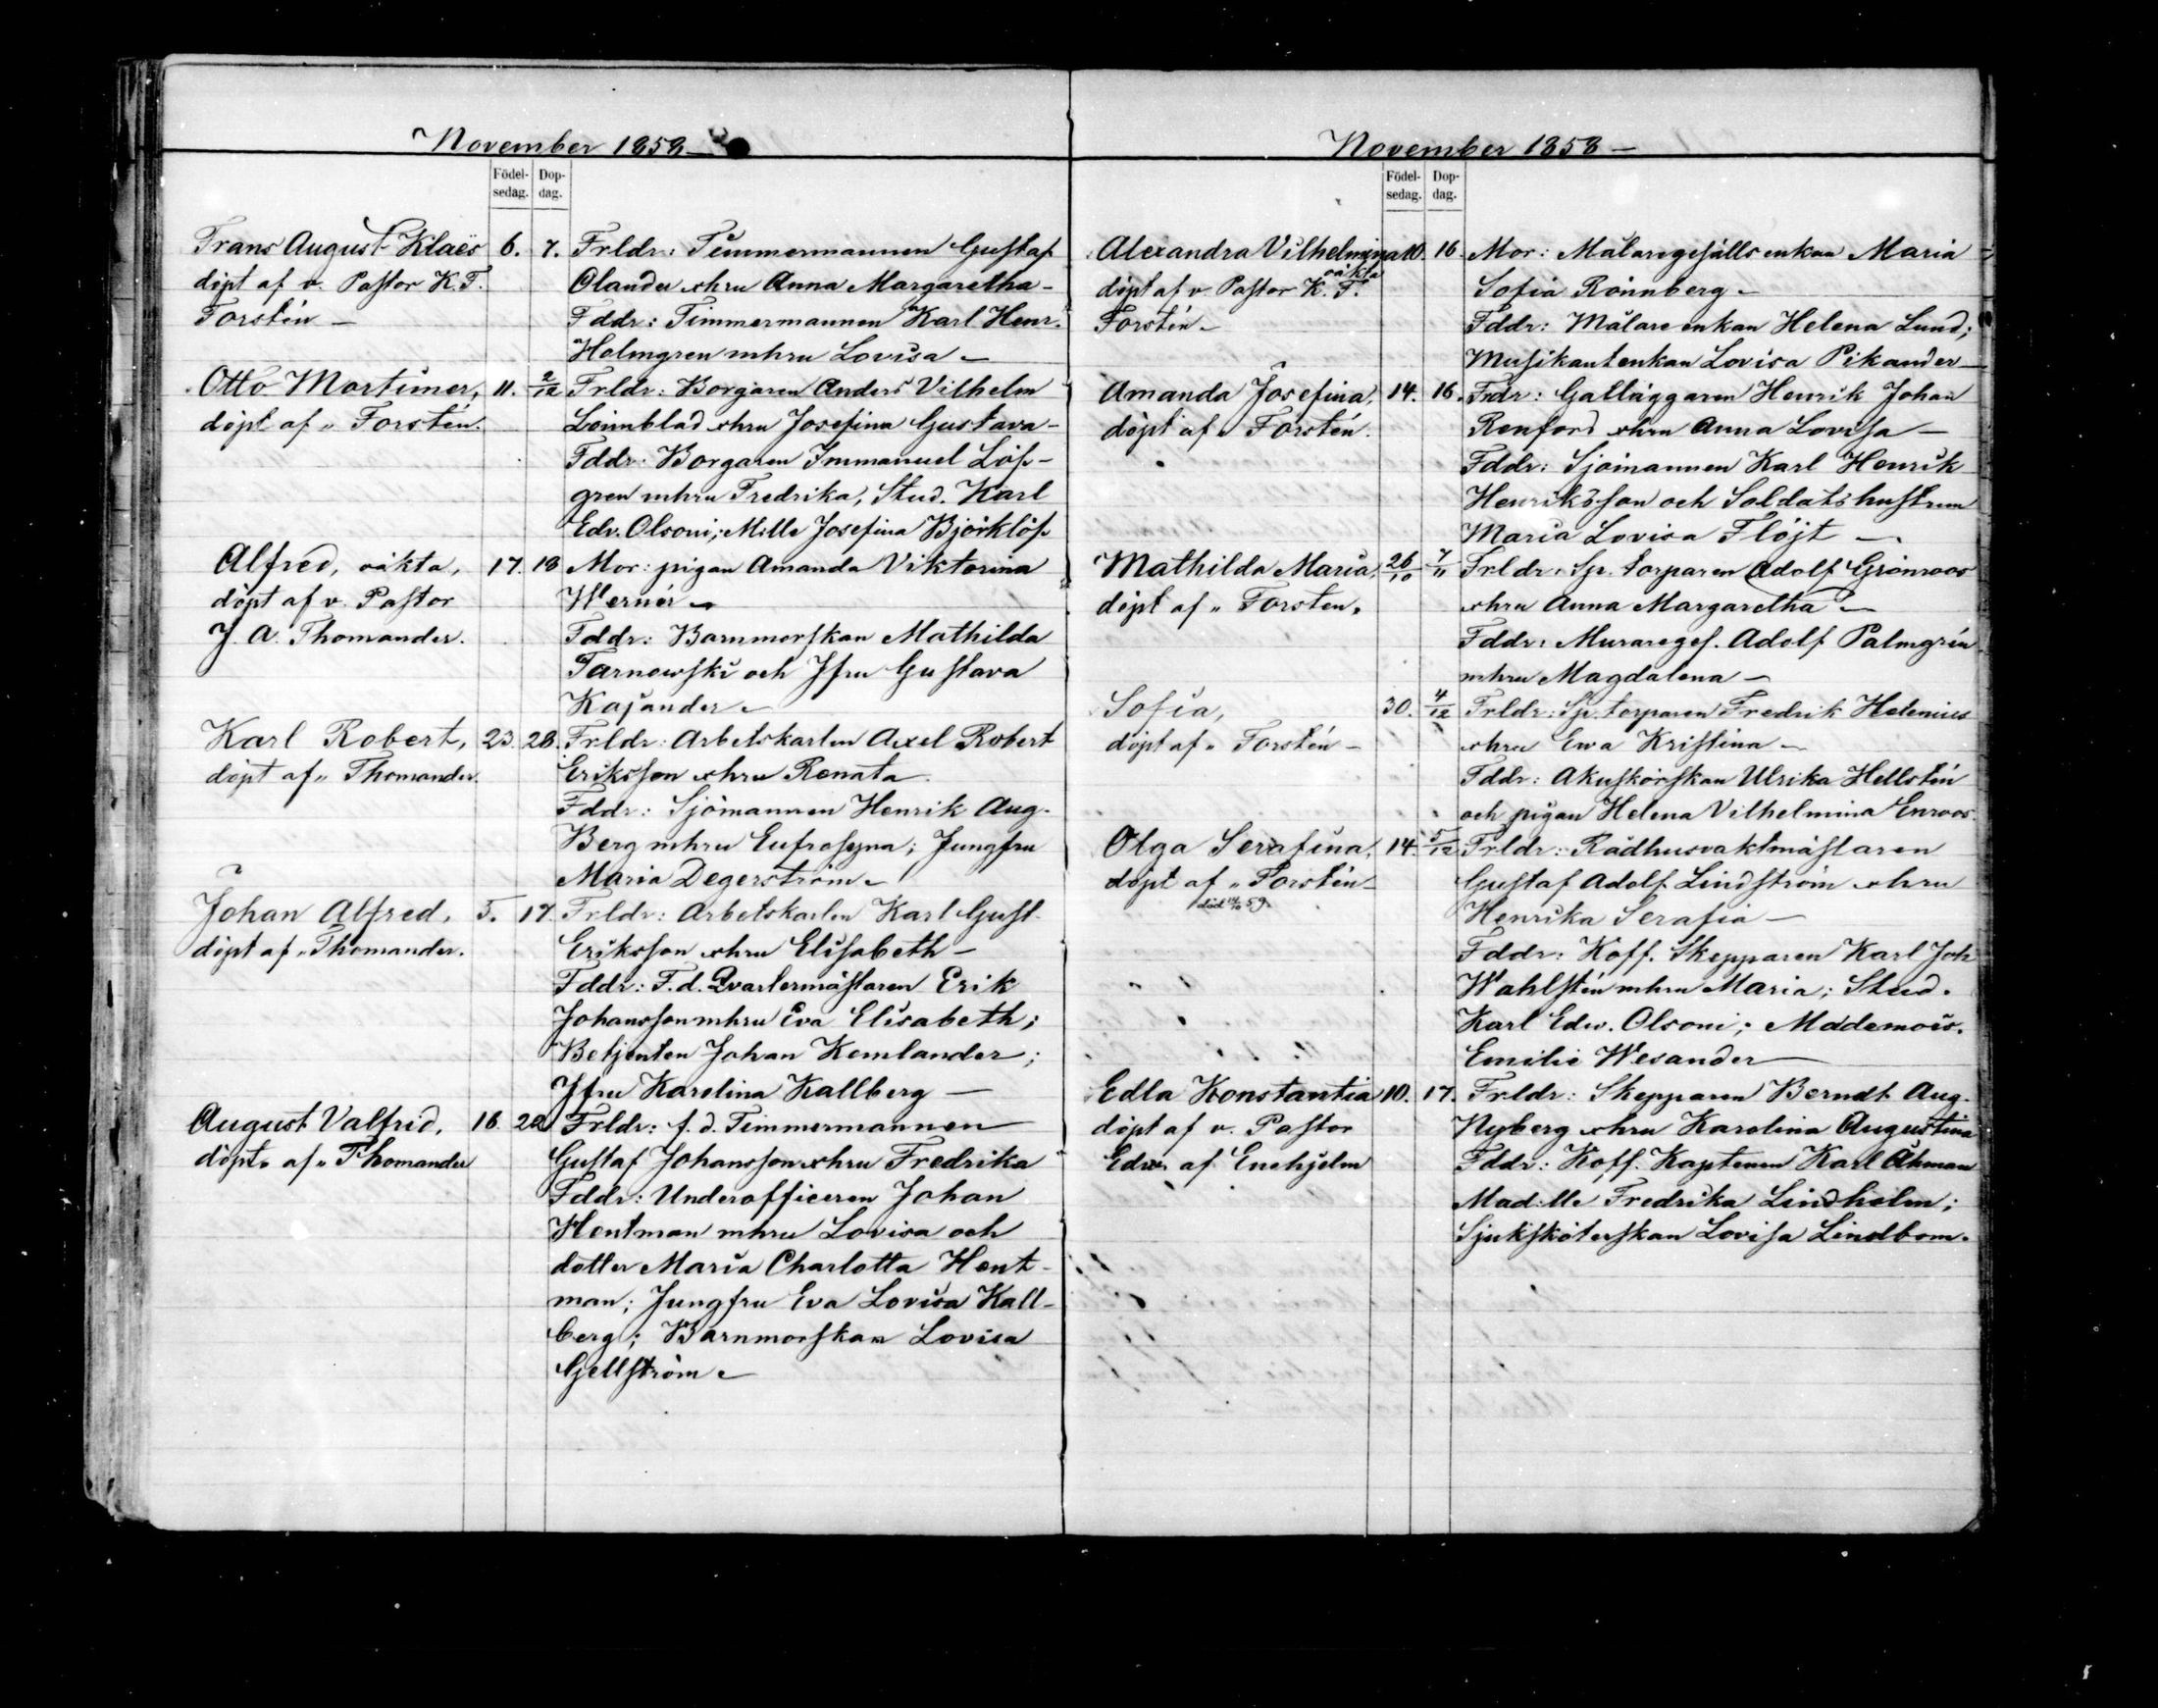 November 1858 —
Födel-
sedag.
Dop-
dag.
Frans August Klaës 6. 7. Frldr: Timmermannen Gustaf
döpt af v. Pastor K. F. Olander o hru Anna Margaretha –
Forstén – Fddr: Timmermannen Karl Henr.
Holmgren m hru Lovisa –
Otto Mortimer, 11. 2/12 Frldr: Borgaren Anders Vilhelm
döpt af „ Forstén. Lönnblad o hru Josefina Gustava –
Fddr: Borgaren Immanuel Löf-
gren m hru Fredrika, Stud. Karl
Edv. Olsoni; Mlle Josefina Björklöf
Alfred, oäkta, 17. 18 Mor: pigan Amanda Viktorina
döpt af v. Pastor Wernér –
J. A. Thomander. Fddr: Barnmorskan Mathilda
Tarnowski och Jfru Gustava
Kajander –
Karl Robert, 23. 28. Frldr: Arbetskarlen Axel Robert
döpt af „ Thomander. Eriksson o hru Renata.
Fddr: Sjömannen Henrik Aug.
Berg m hru Eufrosyna; Jungfru
Maria Degerström –
Johan Alfred, 5. 17. Frldr: Arbetskarlen Karl Gust.
döpt af „ Thomander. Eriksson o hru Elisabeth –
Fddr: F.d. Qvartermästaren Erik
Johansson m hru Eva Elisabeth;
Betjenten Johan Kemlander;
Jfru Karolina Kallberg —
August Valfrid, 16. 28 Frldr: f. d. Timmermannen
döpt af „ Thomander Gustaf Johansson o hru Fredrika
Fddr: Underofficeren Johan
Hentman m hru Lovisa och
dotter Maria Charlotta Hent-
man; Jungfru Eva Lovisa Kall-
berg; Barnmorskan Lovisa
Gellström –
November 1858 —
Födel-
sedag.
Dop-
dag.
Alexandra Vilhelmina 10. 16. Mor: Målaregesälls enkan Maria
oäkta
döpt af v. Pastor K. F. Sofia Rönnberg –
Forstén – Fddr: Målare enkan Helena Lund;
Musikantenkan Lovisa Pikander —
Amanda Josefina, 14. 16. Frdr: Gatläggaren Henrik Johan
döpt af „ Forstén. Renford o hru Anna Lovisa —
Fddr: Sjömannen Karl Henrik
Henriksson och Soldatshustrun
Maria Lovisa Flöjt —
Mathilda Maria, 26/10 7/11 Frldr: Sp. torparen Adolf Grönroos
döpt af „ Forstén. o hru Anna Margaretha –
Fddr: Muraregés. Adolf Palmgrén
m hru Magdalena –
Sofia, 30. 4/12 Frldr: Sp. torparen Fredrik Helenius
döpt af „ Forstén – o hru Ewa Kristina –
Fddr: Akuskörskan Ulrika Hellstén
och pigan Helena Vilhelmina Enroos.
Olga Serafina, 14. 5/12 Frldr: Rådhusvaktmästaren
döpt af „ Forstén – Gustaf Adolf Lindström o hru
död 59. Henrika Serafia —
Fddr: Koff. Skepparen Karl Joh
Wahlstén m hru Maria; Stud.
Karl Edw. Olsoni; Mademois.
Emilie Wesander —
Edla Konstantia 10. 17. Frldr: Skepparen Berndt Aug.
döpt af v. Pastor Nyberg o hru Karolina Augustina
Edw. af Enehjelm Fddr: Koff. Kaptenen Karl Åhman
Mad:lle Fredrika Lindholm;
Sjuksköterskan Lovisa Lindbom.